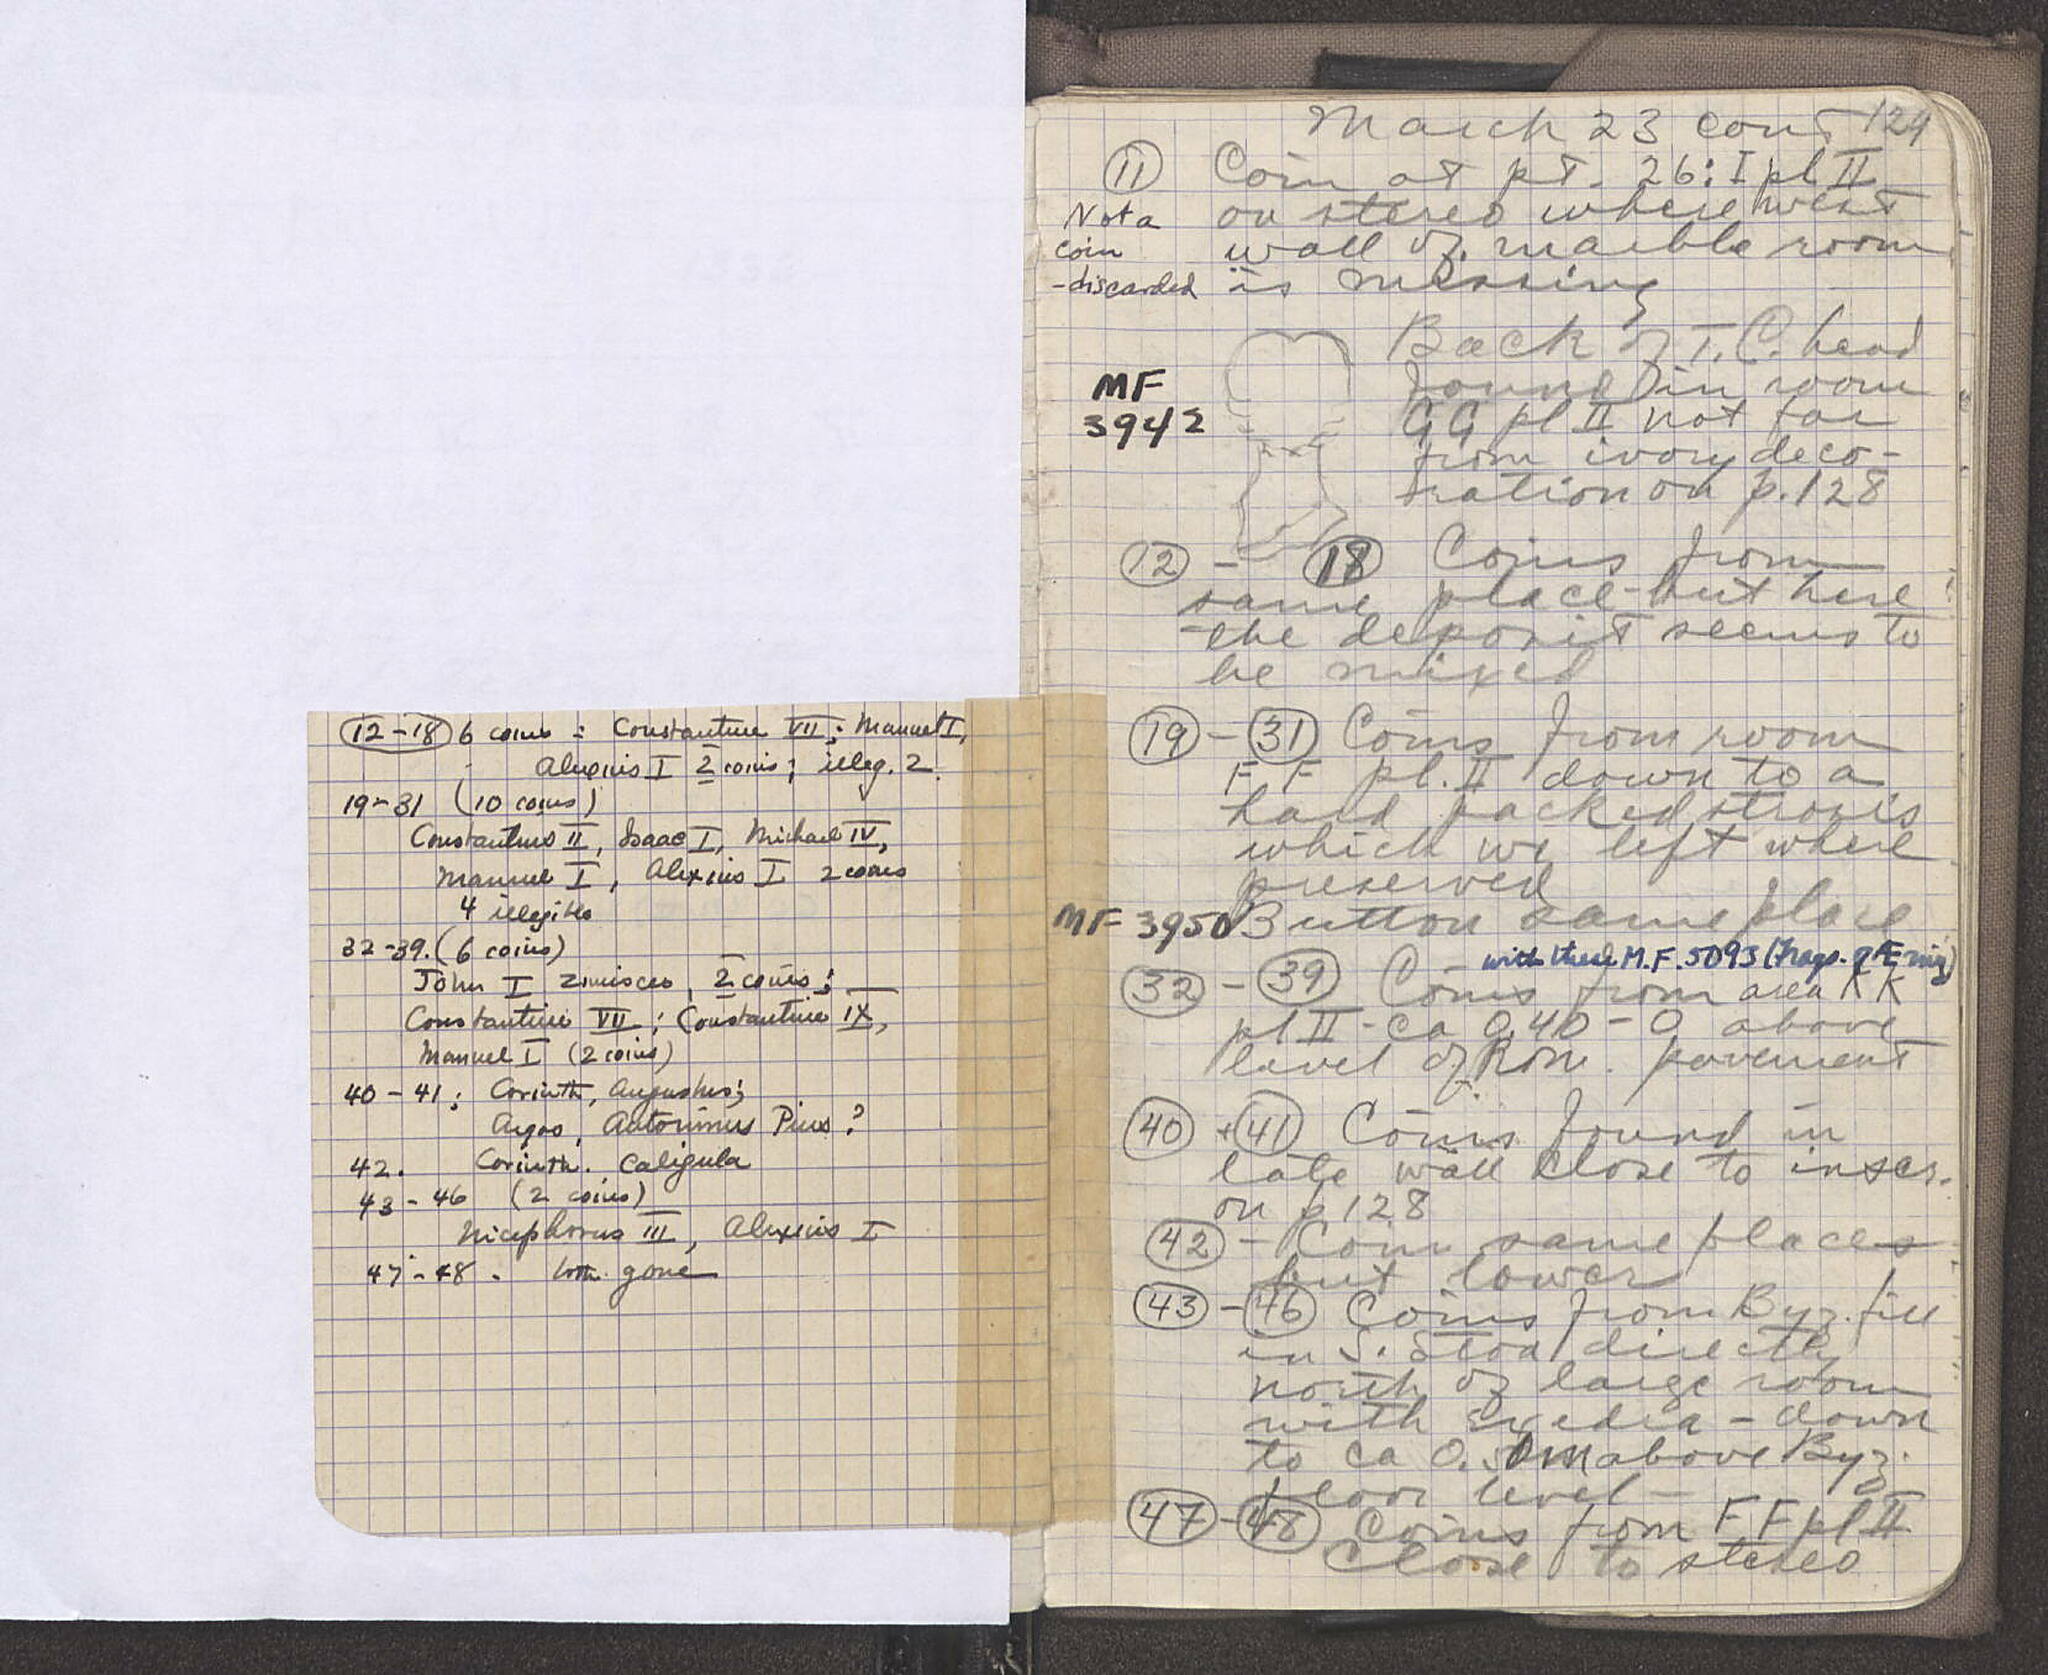 (12-18) 6 coins : Constantine VII; Manuel I,
Alexius I 2 coins; illeg. 2.
19-31 (10 coins)
Constantius II, Isaac I, Michael IV,
Manuel I, Alexius I 2 coins
4 illegible
32-39. (6 coins)
John I Zimisces, 2 coins;
Constantine VII; Constantine IX,
Manuel I (2 coins)
40-41; Corinth, Augustus;
Argos, Antoninus Pius?
42. Corinth. Caligula
43-46 (2 coins)
Nicephorus III, Alexius I
47-48. both gone
March 23 cont 129
(11) Coin at pt. 26:I pl II
Not a on stereo where west
coin wall of marble room
-discarded is missing
Back of T.C. head
MF found in room
3942 GG pl II not far
from ivory deco-
ration on p.128
(12) - (18) Coins from
same place - but here
the deposit seems to
be mixed
(19) - (31) Coins from room
FF pl. II down to a
hard packed strosis
which we left where
preserved
MF 3950 Button same place
with these M.F. 5093 (frags. of Æ ring)
(32) - (39) Coins from area KK
pl II - ca 0.40 - 0 above
level of Rom. pavement
(40) + (41) Coins found in
late wall close to inscr.
on p 128
(42) - Coin same place
but lower
(43) - (46) Coins from Byz. fill
in S. Stoa directly
north of large room
with exedra - down
to ca 0.50m above Byz.
floor level -
(47) - (48) Coins from FF pl II
Close to stereo